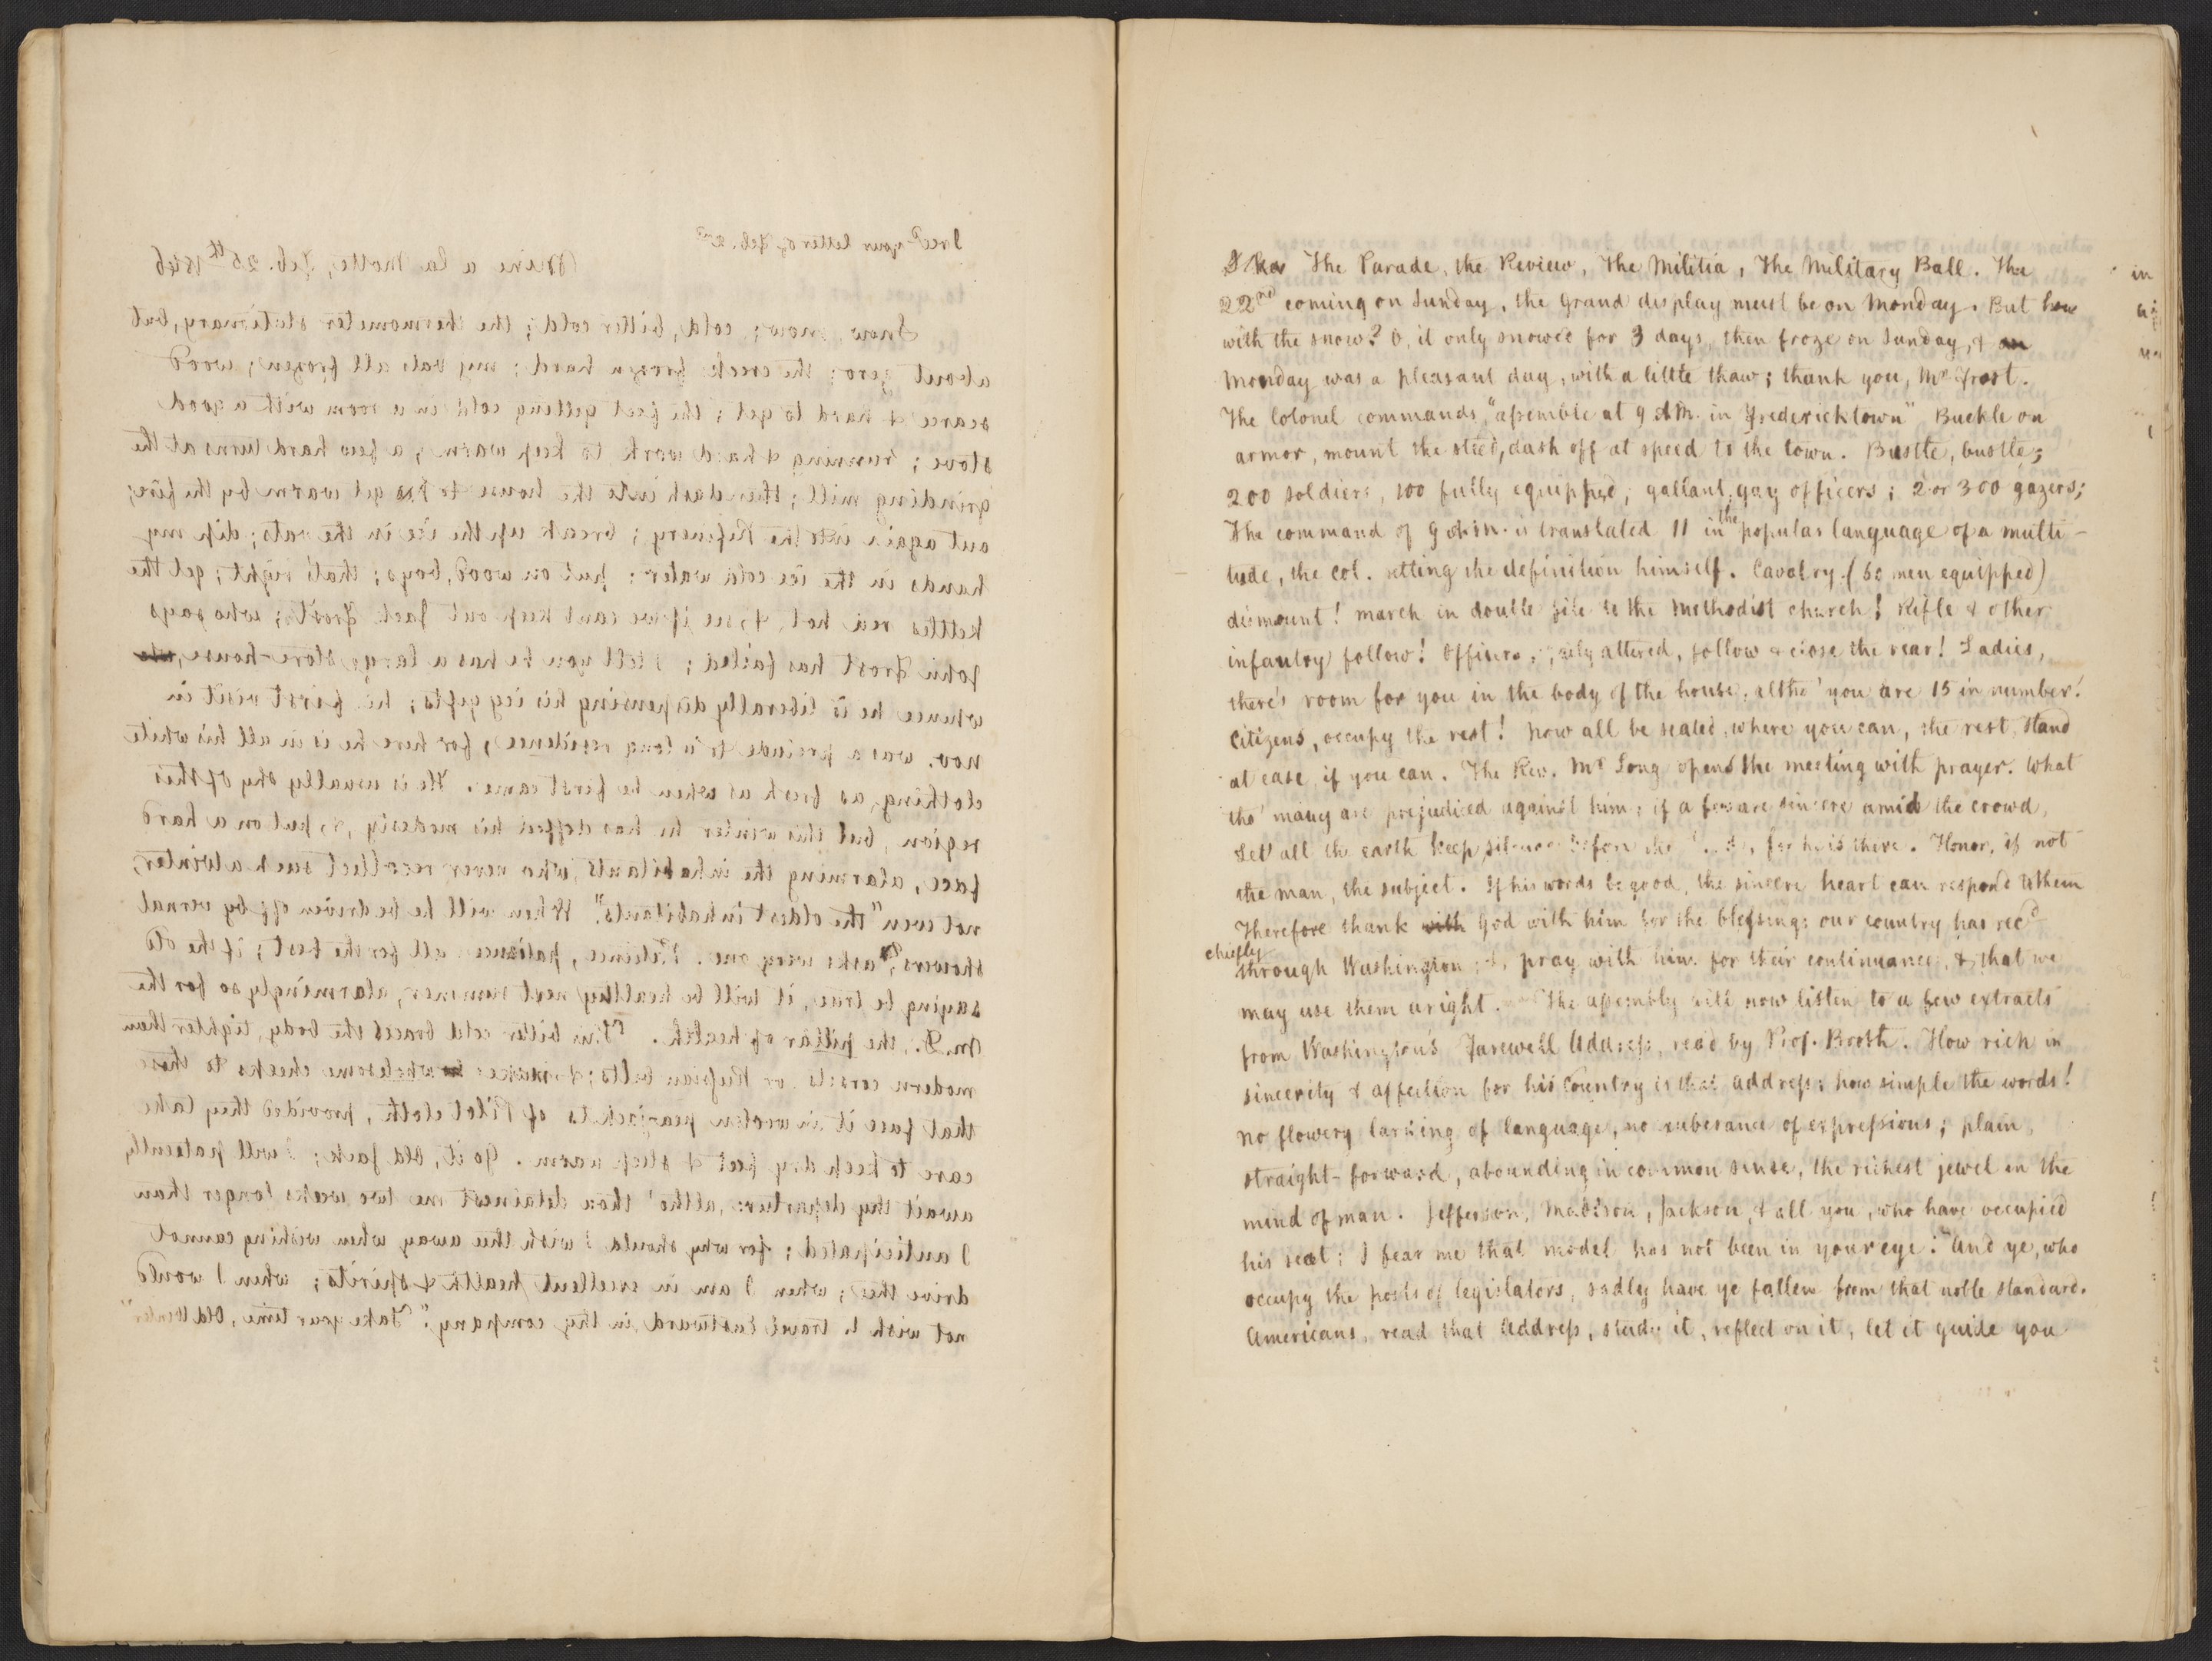 I rec'd your letter of Feb. 2nd
Mine a la Motte, Feb. 25th 1846
Snow, snow; cold, bitter cold; the thermometer stationary, but
about zero; the creek frozen hard; my vats all frozen; wood
scarce & hard to get; the feet getting cold in a room with a good
stove; running & hard work to keep warm; a few hard turns at the
grinding mill; then dash into the house to get warm by the fire;
out again into the Refinery; break up the ice in the vats; dip my
hands in the ice cold water: put on wood, boys; that's right; get the
kettles red hot, & see if we cant keep out Jack Frost; who says
John Frost has failed; I tell you he has a large store-house,
whence he is liberally dispensing his icy gifts; his first visit in
Nov. was a prelude to a long residence, for here he is in all his white
clothing, as fresh as when he first came. He is usually shy of this
region, but this winter he has doffed his modesty, & put on a hard
face, alarming the inhabitants, who never recollect such a winter,
not even "the oldest inhabitants." When will he be driven off by vernal
showers? asks every one. Patience, patience all for the best; if the old
saying be true, it will be healthy next summer, alarmingly so for the
M.D., the pillar of health. This bitter cold braces the body, tighter than
modern corsets or Russian belts; & makes wholesome cheeks to those
that face it in woolen pea-jackets of Pilot cloth, provided they take
care to keep dry feet & sleep warm. Go it, old Jack; I will patiently
await thy departure, altho' thou detainest me two weeks longer than
I anticipated; for why should I wish thee away when wishing cannot
drive thee; when I am in excellent health & spirits; when I would
not wish to travel Eastward in thy company. "Take your time, Old Winter"
The Parade, the Review, The Militia, The Military Ball. The
22nd coming on Sunday, the Grand display must be on Monday. But how
with the snow? O, it only snowed for 3 days, then froze on Sunday, & on
Monday was a pleasant day, with a little thaw; thank you, Mr Frost.
The Colonel commands, "assemble at 9 A.M. in Fredericktown" Buckle on
armor, mount the steed, dash off at speed to the town. Bustle, bustle;
200 soldiers, 100 fully equipped; gallant, gay officers; 2 or 300 gazers;
The command of 9 A.M. is translated 11 in the popular language of a multi-
tude, the Col. setting the definition himself. Cavalry (50 men equipped)
dismount! march in double file to the Methodist church! Rifle & other
infantry follow! Officers, attired, follow & close the rear! Ladies,
there's room for you in the body of the house, altho' you are 15 in number!
Citizens, occupy the rest! Now all be seated, where you can, the rest, stand
at ease, if you can. The Rev. Mr Long opens the meeting with prayer. What
tho' many are prejudiced against him; if a few are sincere amid the crowd,
Let all the earth keep silence before the, for he is there. Honor, if not
the man, the subject. If his words be good, the sincere heart can respond to them
Therefore thank with God with him for the blessings our country has rec'd
chiefly
through Washington; & pray with him for their continuance, & that we
may use them aright. The assembly will now listen to a few extracts
from Washington's Farewell Address, read by Prof. Booth. How rich in
sincerity & affection for his Country is that address; how simple the words!
no flowery larking of language, no exuberance of expressions; plain,
straight-forward, abounding in common sense, the richest jewel in the
mind of man. Jefferson, Madison, Jackson, & all you, who have occupied
his seat; I fear me that model has not been in your eye. And ye, who
occupy the posts of legislators, sadly have ye fallen from that noble standard.
Americans, read that Address, study it, reflect on it, let it guide you
in